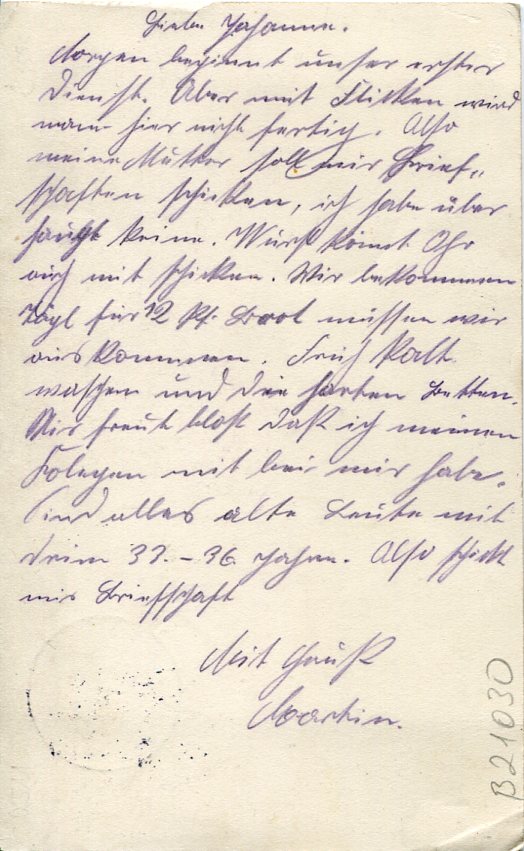 Liebe Johanne.
Morgen beginnt unser erster
Dienst. Aber mit Flicken wird
man hier nicht fertig. Also
meine Mutter soll mir Brief-
schaften schicken, ich habe über
haupt keine. Wurst könnt Ihr
auch mit schicken. Wir bekommen
tägl für 12 Pf. Brot müssen wir
auskommen. Früh kalt
waschen und die harten Betten.
Mir freut bloß daß ich meinen
Kolegen mit bei mir habe.
Sind alles alte Leute mit
drin 33.-36 Jahren. Also schickt
mir Briefschaft
Mit Gruß
Martin.
B21030